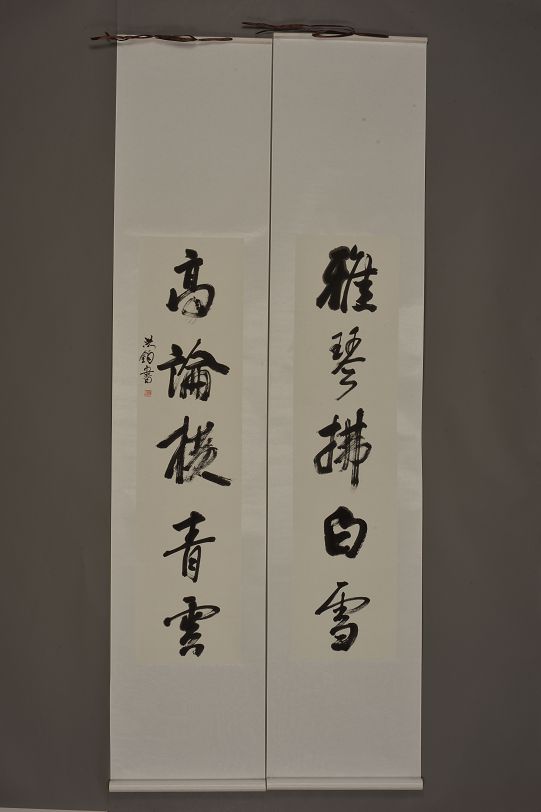 雅琴拂白雪
高論橫青雲
洪鈞書